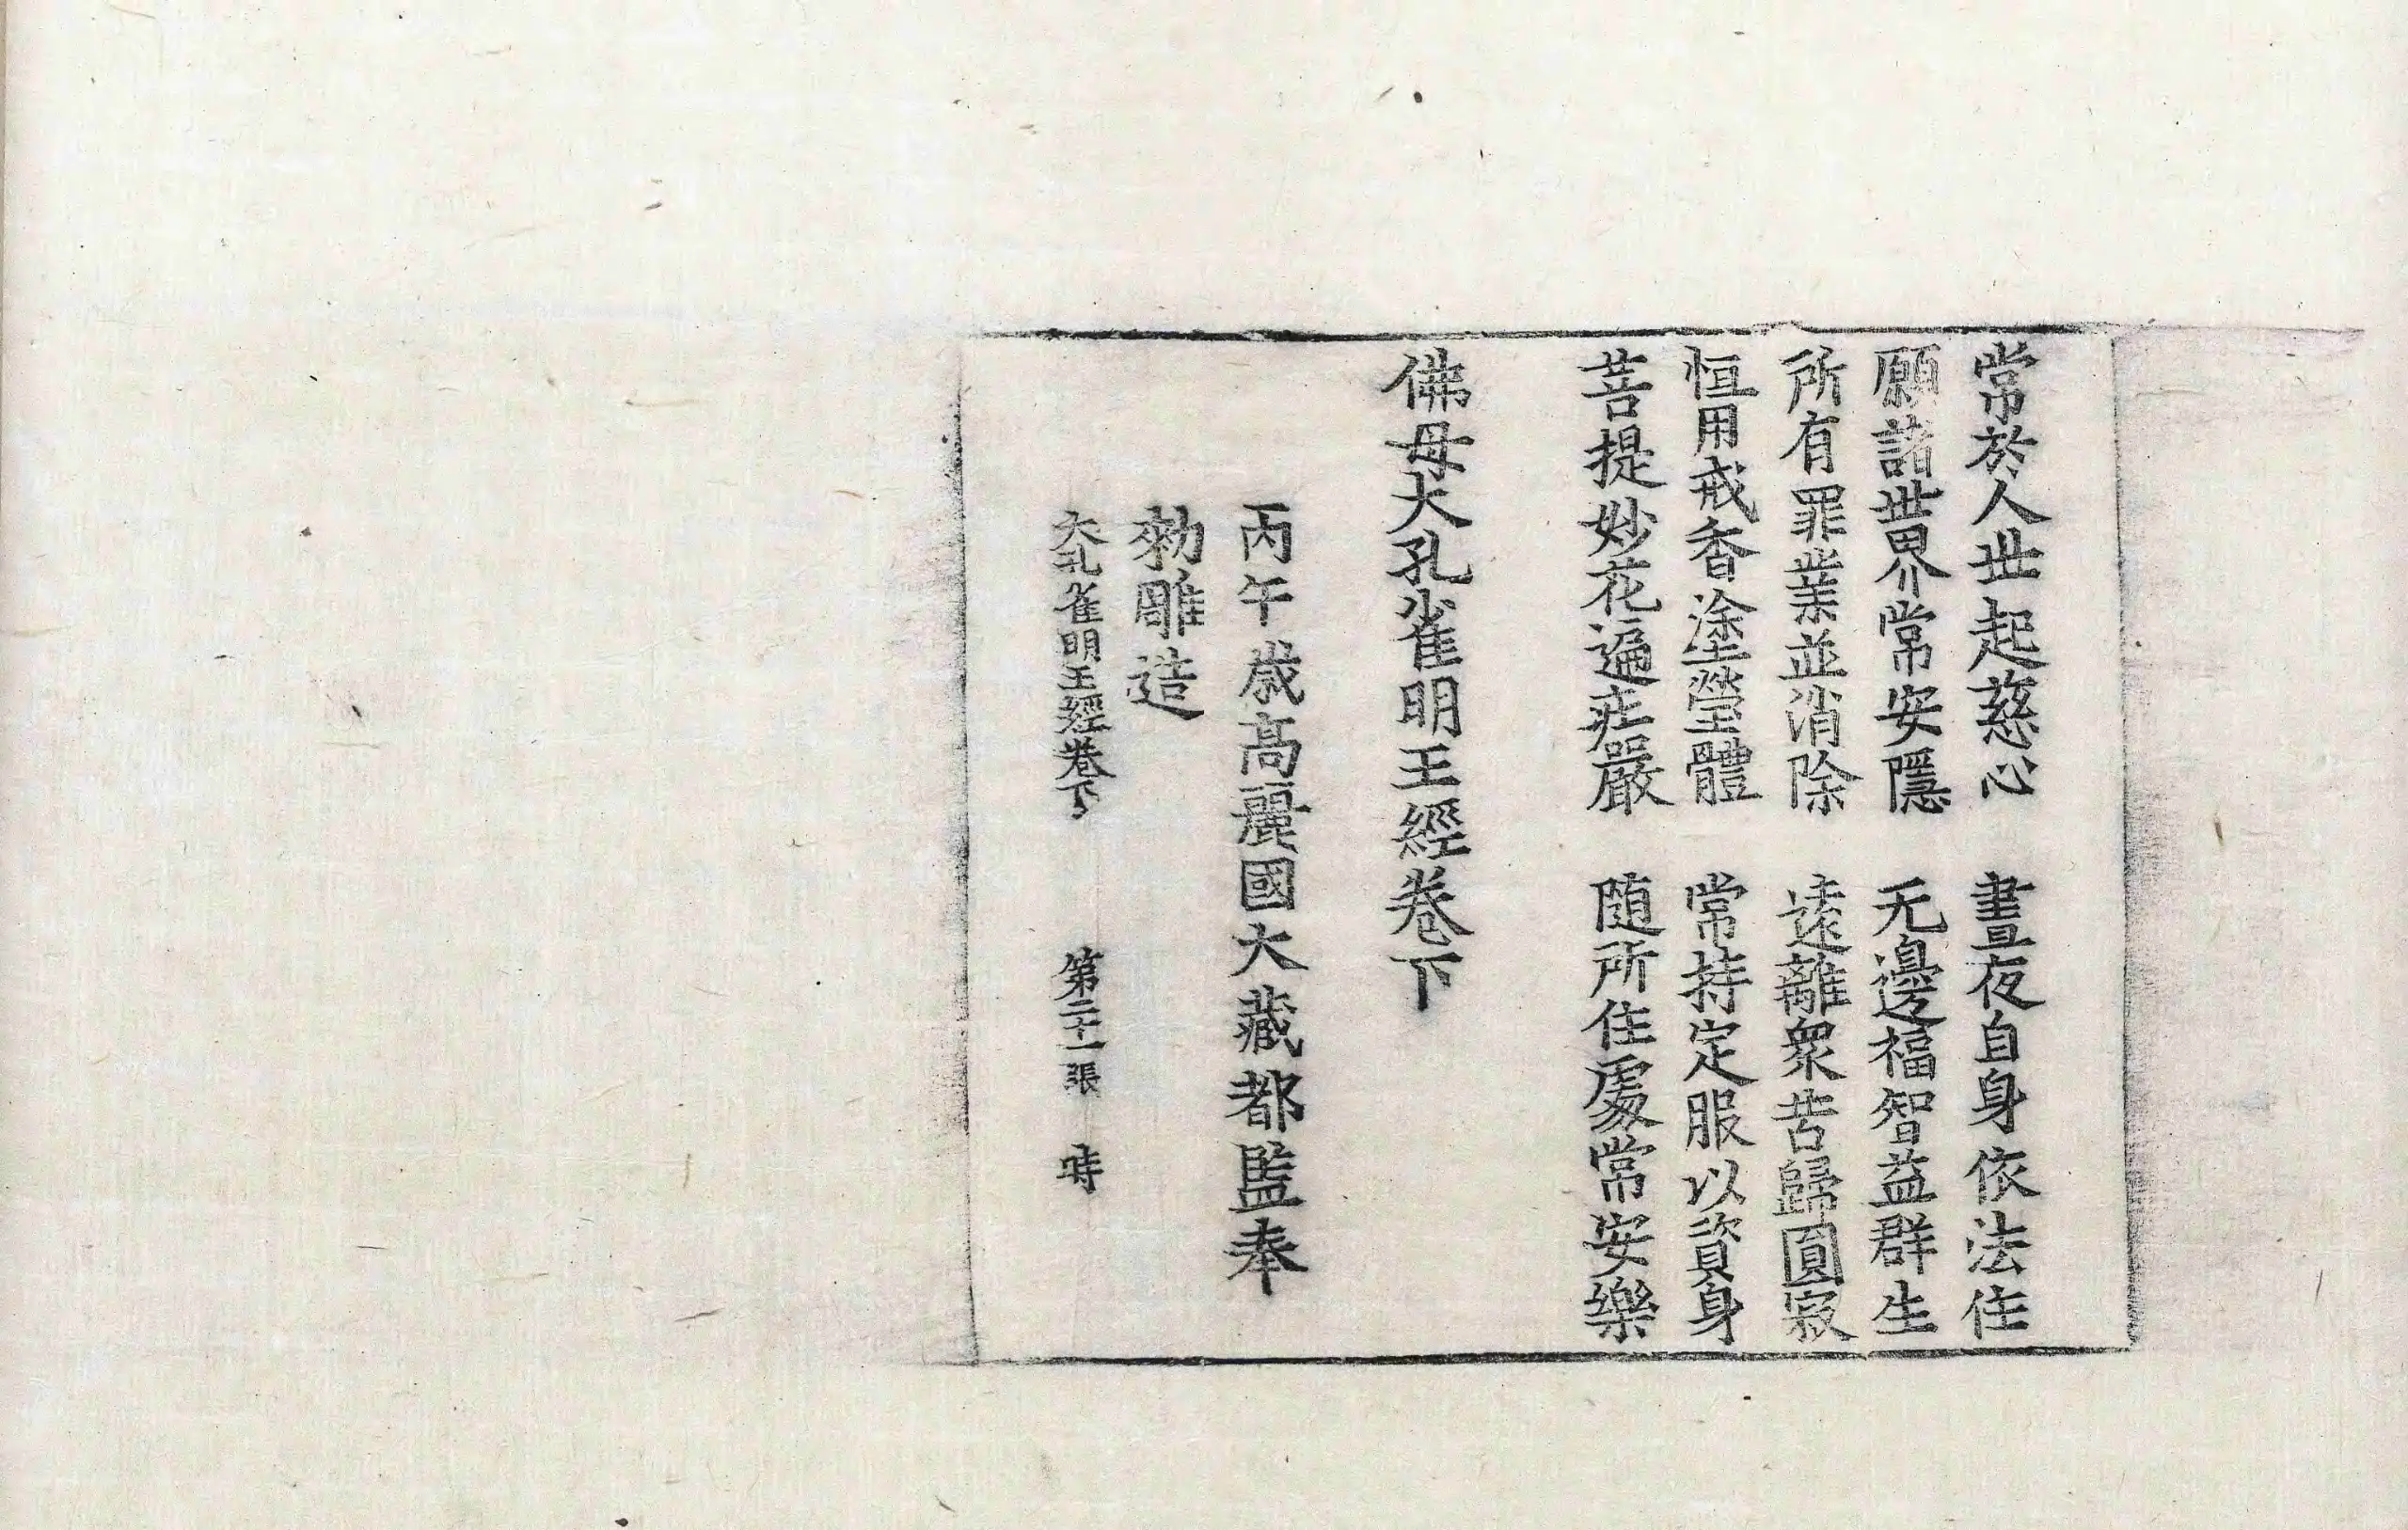 常於人世起慈心　晝夜自身依法住
願諸世界常安隱　无邊福智益群生
所有罪業並消除　遠離衆苦歸圓寂
恒用戒香塗瑩體　常持定服以資身
菩提妙花遍莊嚴　随所住處常安樂
佛母大孔雀明王經卷下
丙午歲高麗國大藏都監奉
勑雕造
大孔雀明王經卷下　第二十一張　時